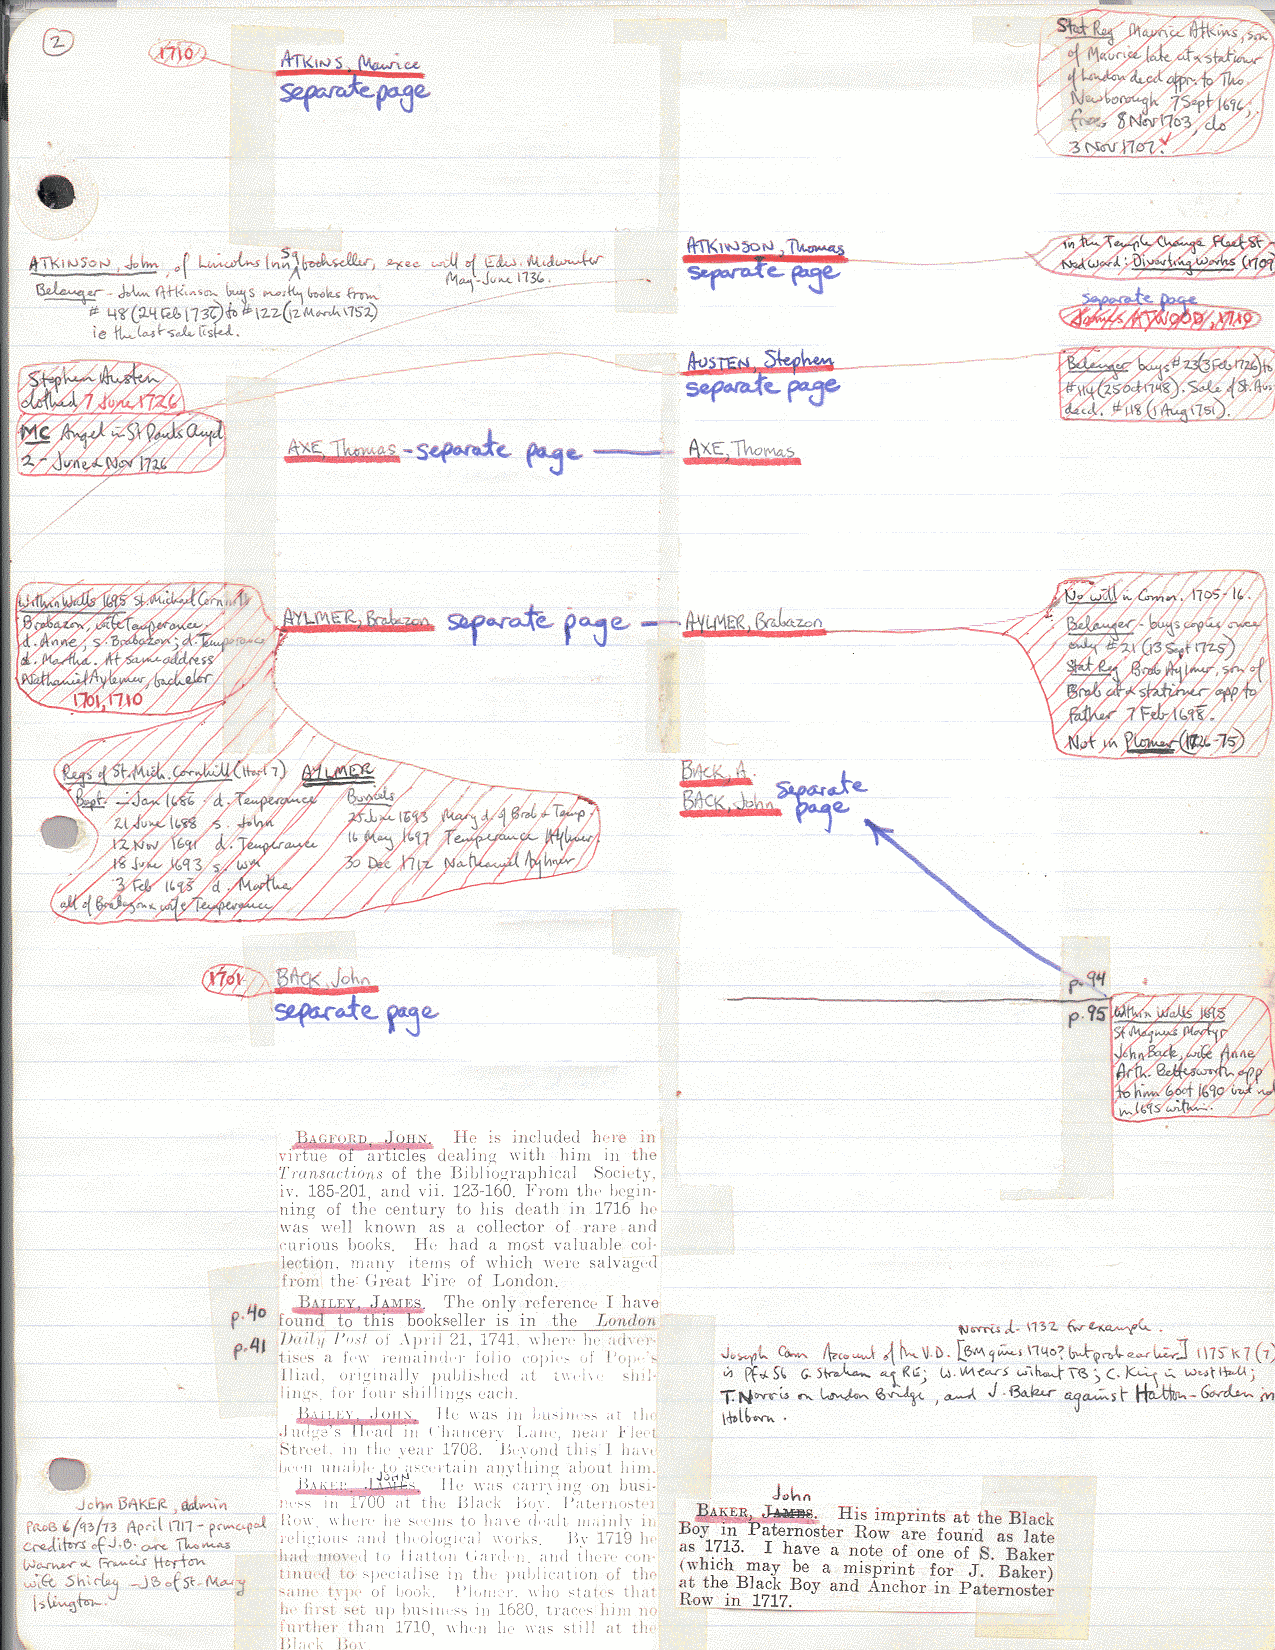 2
1710
ATKINS, Maurice
separate page
Stat Reg Maurice Atkins, son
of Maurice late cit & stationer
of London decd appr. to Tho.
Newborough 7 Sept 1696,
free, 8 Nov 1703, clo
3 Nov 1707.
ATKINSON, John, of Lincolns Inn Sq bookseller, exec will of Edw. Midwinter
May-June 1736.
Belanger - John Atkinson buys mostly books from
# 48 (24 Feb 1735) to # 122 (12 March 1752)
ie the last sale listed.
ATKINSON, Thomas
separate page
in the Temple Change Fleet St -
Ned Ward: Diverting Works (1709
separate page
James ATWOOD, 1710
Stephen Austen
clothed 7 June 1726
AUSTEN, Stephen
separate page
Belanger buys # 23 (3 Feb 1726) to
# 114 (25 Oct 1748). Sale of St. Aus
decd. # 118 (1 Aug 1751).
MC Angel in St Pauls Chyd
2 - June & Nov 1726
AXE, Thomas - separate page
AXE, Thomas
Within Walls 1695 St. Michael Cornhill
Brabazon, wife Temperance.
d. Anne, s. Brabazon; d. Temperance
d. Martha. At same address
Nathaniel Aylemer, bachelor
1701, 1710
AYLMER, Brabazon separate page
AYLMER, Brabazon
No will in Comm. 1705-16.
Belanger - buys copies once
only # 21 (13 Sept 1725)
Stat Reg Brab Aylmer, son of
Brab cit & stationer app to
father 7 Feb 1698.
Not in Plomer (1726-75)
Regs of St. Mich. Cornhill (Harl 7) AYLMER
Bapt. - Jan 1686 d. Temperance
21 June 1688 s. John
12 Nov 1691 d. Temperance
18 June 1693 s. Wm
3 Feb 1695 d. Martha
all of Brabazon & wife Temperance
Burials
25 June 1693 Mary d. of Brab & Temp.
16 May 1697 Temperance Aylmer
30 Dec 1712 Nathaniel Aylmer
BACK, A.
BACK, John
separate
page
1701
BACK, John
separate page
p. 94
p. 95
Within Walls 1695
St Magnus Martyr
John Back, wife Anne
Arth. Bettesworth app
to him 6 Oct 1690 but not
in 1695 within.
BAGFORD, JOHN. He is included here in
virtue of articles dealing with him in the
Transactions of the Bibliographical Society,
iv. 185-201, and vii. 123-160. From the begin-
ning of the century to his death in 1716 he
was well known as a collector of rare and
curious books. He had a most valuable col-
lection, many items of which were salvaged
from the Great Fire of London.
p. 40
p. 41
BAILEY, JAMES. The only reference I have
found to this bookseller is in the London
Daily Post of April 21, 1741, where he adver-
tises a few remainder folio copies of Pope's
Iliad, originally published at twelve shil-
lings, for four shillings each.
BAILEY, JOHN. He was in business at the
Judge's Head in Chancery Lane, near Fleet
Street, in the year 1708. Beyond this I have
been unable to ascertain anything about him.
JOHN
BAKER, JAMES. He was carrying on busi-
ness in 1700 at the Black Boy, Paternoster
Row, where he seems to have dealt mainly in
religious and theological works. By 1719 he
had moved to Hatton Garden, and there con-
tinued to specialise in the publication of the
same type of book. Plomer, who states that
he first set up business in 1680, traces him no
further than 1710, when he was still at the
Black Boy
Norris d. 1732 for example.
Joseph Cam Account of the V.D. [BM gives 1740? but prob earlier] 1175 k 7 (7)
is Pf & S6 G. Strahan ag RE; W. Mears without TB; C. King in West Hall;
T. Norris on London Bridge, and J. Baker against Hatton-Garden in
Holborn.
John BAKER, admin
PROB 6/93/73 April 1717 - principal
creditors of J.B. are Thomas
Warner & Francis Horton
wife Shirley - JB of St. Mary
Islington.
John
BAKER, JAMES. His imprints at the Black
Boy in Paternoster Row are found as late
as 1713. I have a note of one of S. Baker
(which may be a misprint for J. Baker)
at the Black Boy and Anchor in Paternoster
Row in 1717.